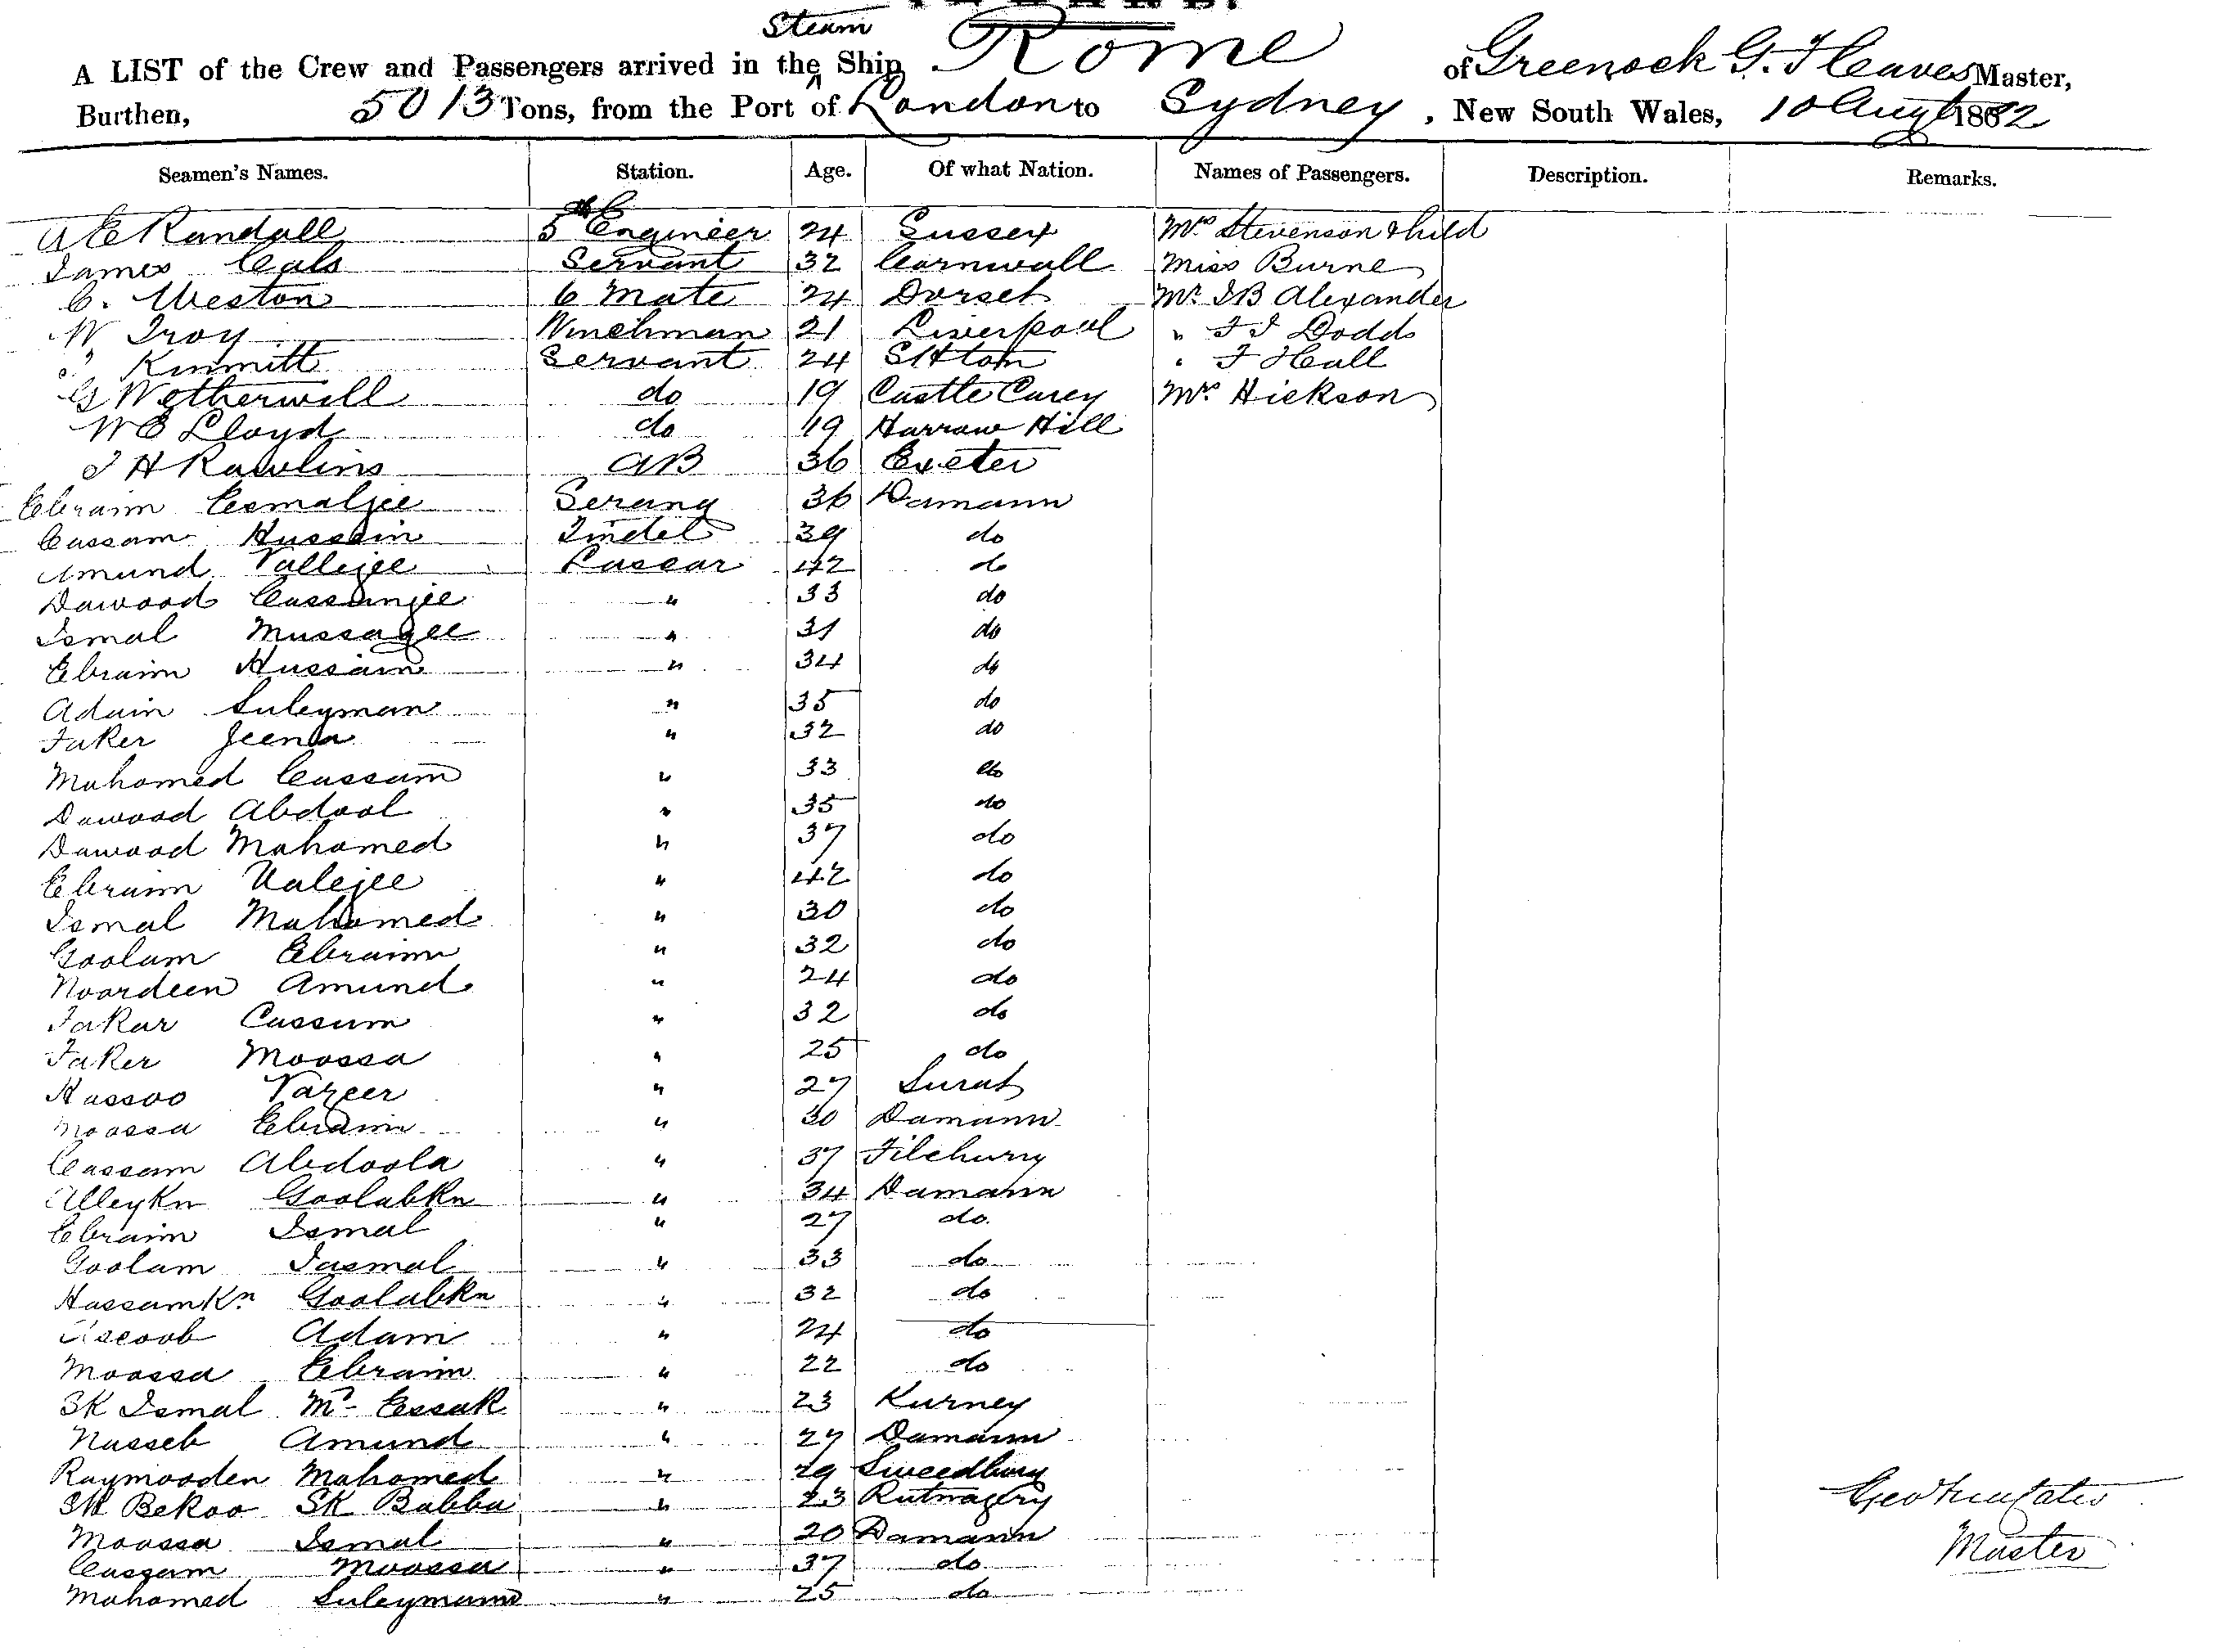 Steam
A LIST of the Crew and Passengers arrived in the Ship Rome of Greenock G. F Master,
Burthen, 5013 Tons, from the Port of London to Sydney, New South Wales, 10 Augt 1882
Seamen's Names. Station. Age. Of what Nation. Names of Passengers. Description. Remarks.
Randall 5 Engineer 24 Sussex Mrs Stevenson & child
James Servant 32 Cornwall Miss Burne
C. Weston 6 Mate 24 Dorset Mr. J B Alexander
W Troy Winchman 21 Liverpool " F J Dodds
" Kimmitt Servant 24 " F Hall
G Wetherwill do 19 Castle Carey Mr. Hickson
W E Lloyd do 19 Harrow Hill
J H Rawlins AB 36 Exeter
Ebraim Esmaljee Serang 36 Damann
Cassam Hussein Tindel 39 do
Amund Vallejee Lascar 42 do
Dawood Cassamjee " 33 do
Ismal Mussagee " 31 do
Ebraim Hussain " 34 do
Adam Suleyman " 35 do
Faker Jeena " 32 do
Mahomed Cassam " 33 do
Dawood Abdool " 35 do
Dawood Mahomed " 37 do
Ebraim Valejee " 42 do
Ismal Mahomed " 30 do
Goolam Ebraim " 32 do
Noordeen Amund " 24 do
Fakar Cassum " 32 do
Faker Moossa " 25 do
Hassoo Vazeer " 27 Surat
Moossa Ebraim " 30 Damann
Cassam Abdoola " 37
Alleykn Goolabkn " 34 Damann
Ebraim Ismal " 27 do.
Goolam Jasmal " 33 do
Hassamkn Goolabkn " 32 do
Adam " 24 do
Moossa Ebraim " 22 do
SK Ismal Md Essak " 23 Kurney
Nasseb Amund " 27 Damann
Raymooden Mahomed " 29
SK Bekoo SK Babba " 23 Rutnagery
Moossa Ismal " 20 Damann
Cassam Moossa " 37 do
Mahomed Suleymann " 25 do
Master